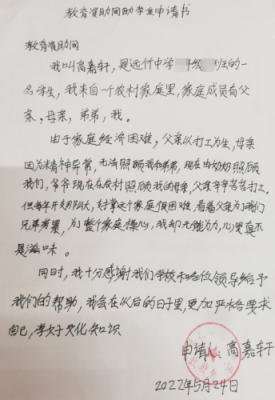 教育资助网助学金申请书
教育资助网
我叫高嘉轩，是远竹中学 班的一
名学生，我来自个农村家庭里，家庭成员有父
亲，母亲，弟弟，我。
由于家庭经济困难，父亲以打工为生，母亲
因为精神异常，无法照顾我和弟弟，现在由奶奶照顾
我们，爷爷现在在农村照顾我的母亲，父亲辛辛苦苦打工。
但每年开支都大，支撑这个家庭很困难，看着父亲为我们
兄弟 ，为整个家庭操心，我却无能为力，心里真不
是滋味。
同时，我十分感谢我们学校和各位领导给予
我们的帮助，我会在以后的日子里，更加严格要求
自己，学好文化知识
申请人 高嘉轩
2022年5月24日